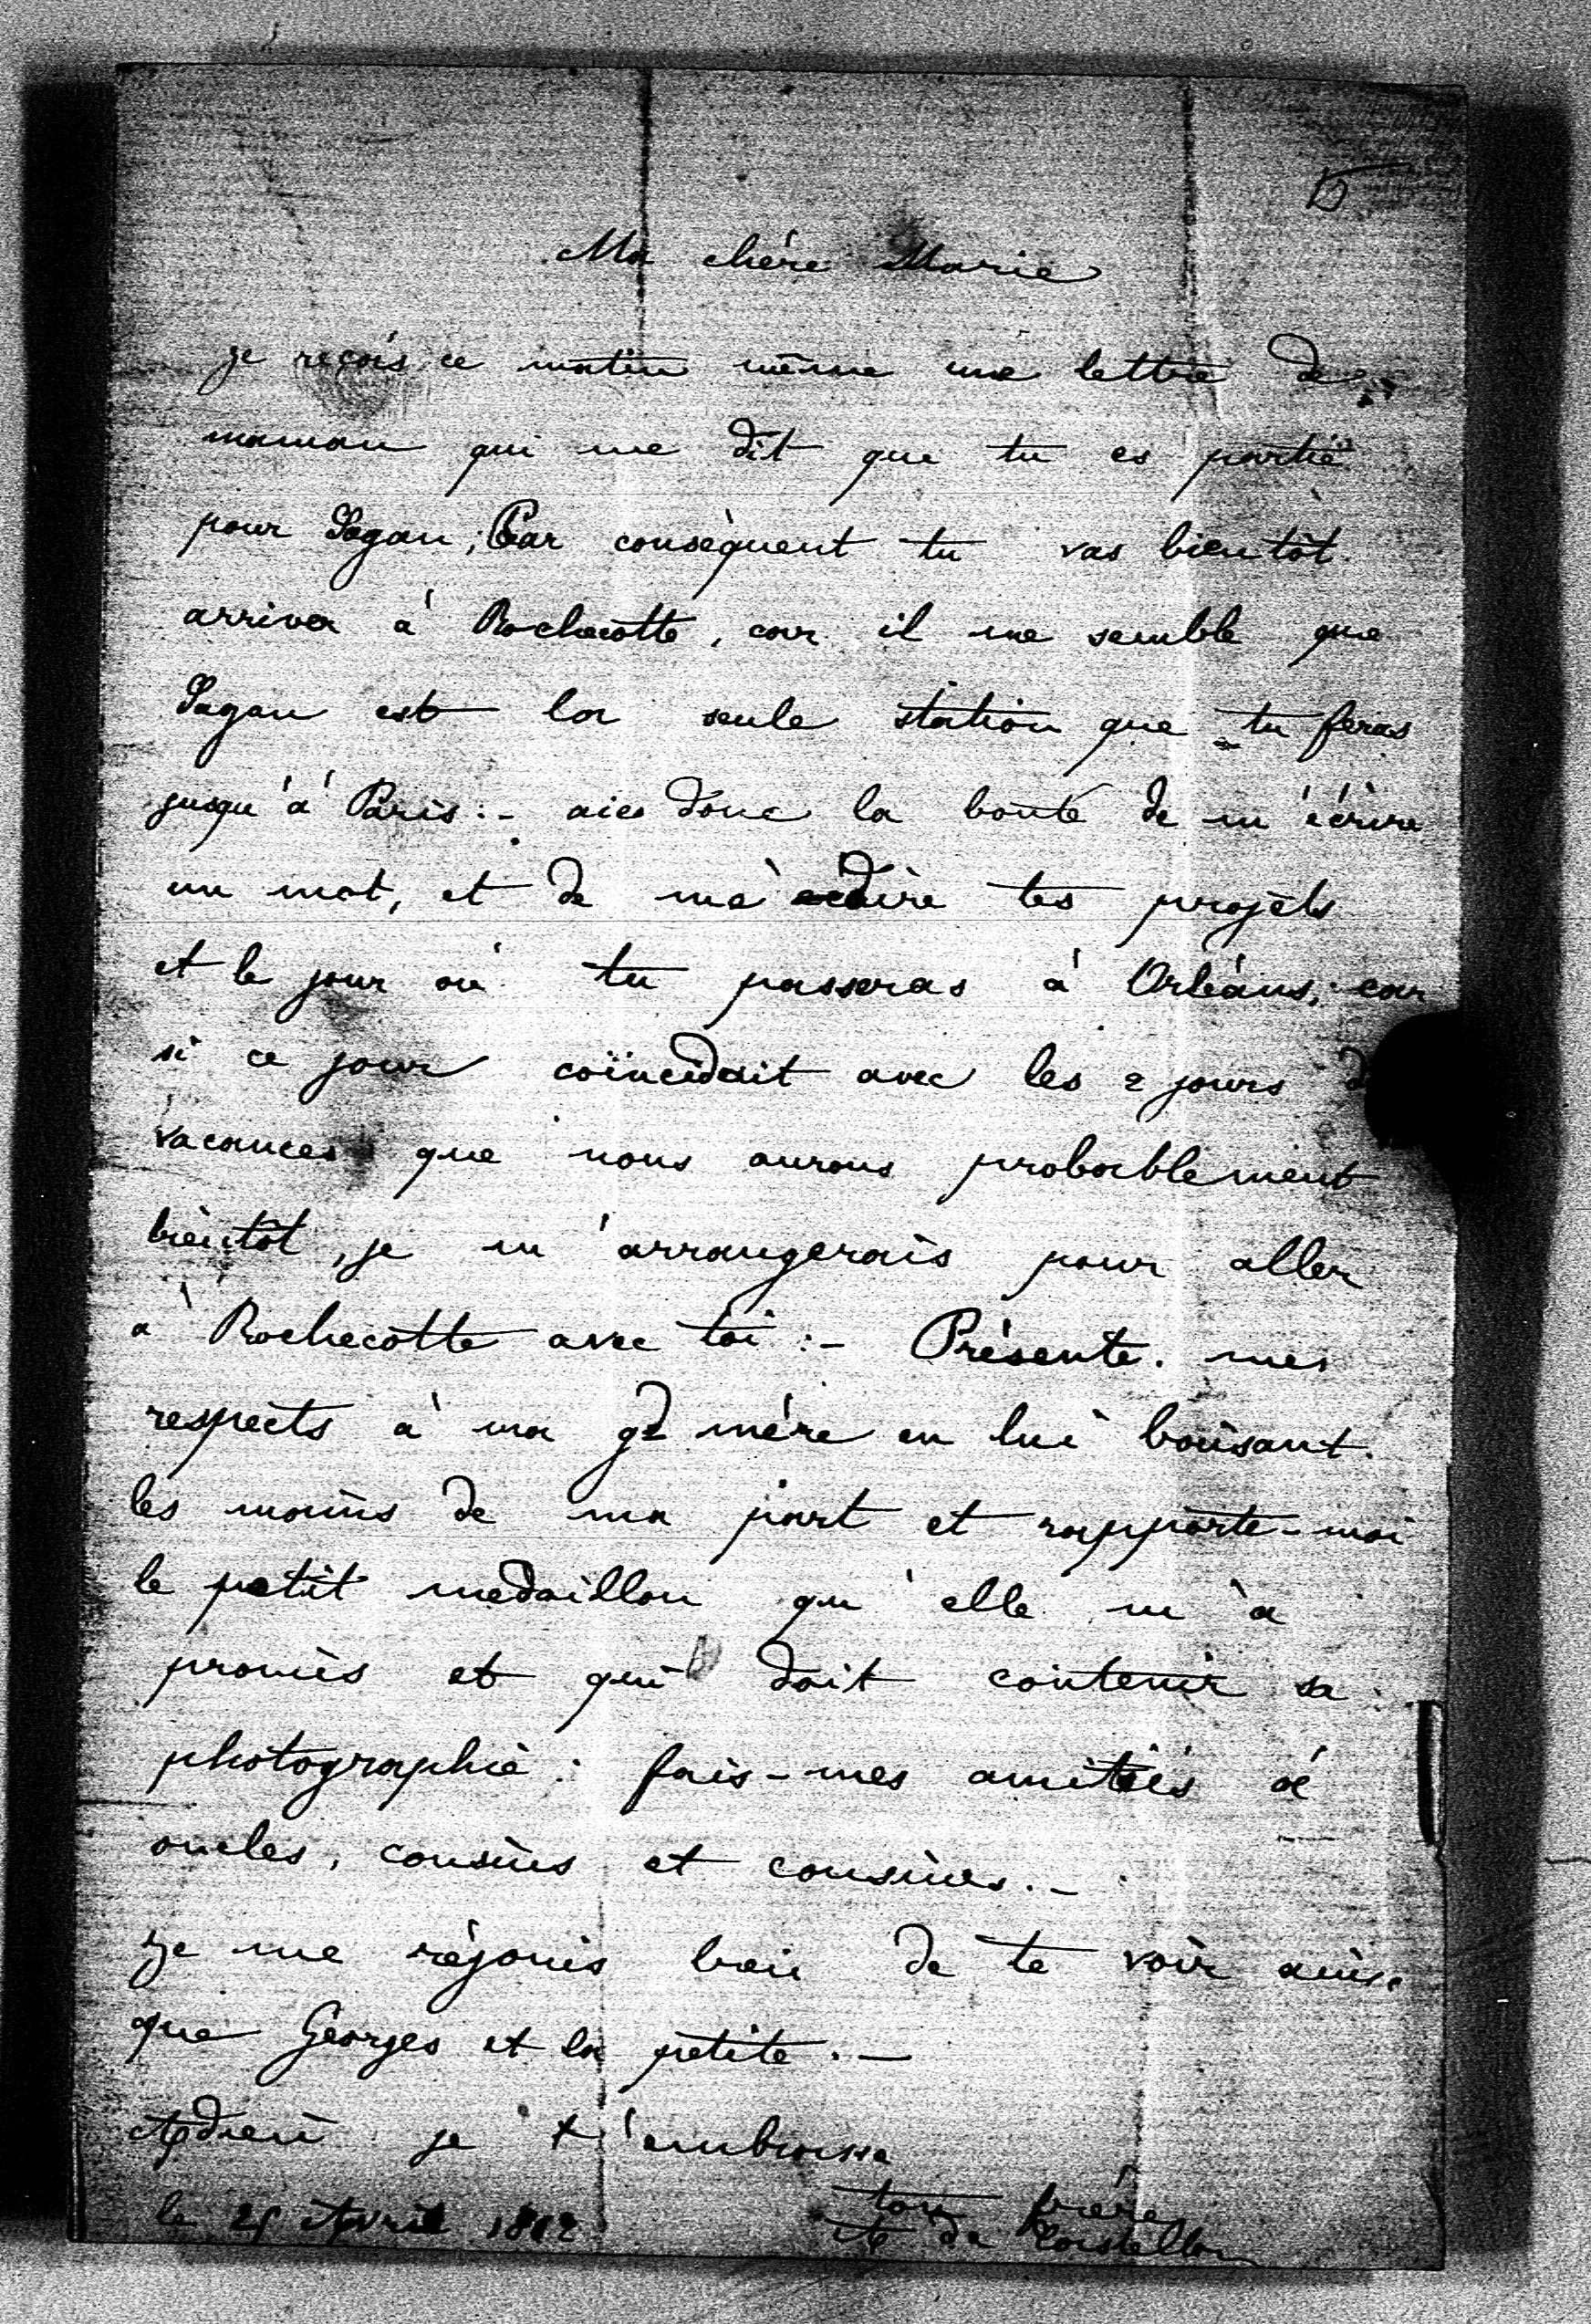 5
Ma chère Marie
je reçois ce matin même une lettre de
maman qui me dit que tu es partie
pour Sagan, Par conséquent tu vas bientôt
arriver à Rochecotte, car il me semble que
Sagan est la seule station que tu feras
jusqu'à Paris :- aies donc la bonté de m'écrire
un mot, et de me dire tes projets
et le jour où tu passeras à Orléans; car
si ce jour coïncidait avec les 2 jours
vacances que nous aurons probablement
bientôt, je m'arrangerais pour aller
à Rochecotte avec toi :- Présente mes
respects à ma gd mère en lui baisant
les mains de ma part et rapporte-moi
le petit medaillon qu'elle m'a
promis et qui doit contenir sa
photographie : fais-mes amitiés à
oncles, cousins et cousines.-
Je me réjouis bien de te voir
que Georges et la petite.-
Adieu je t'embrasse
ton frère
le Avril de Castellan